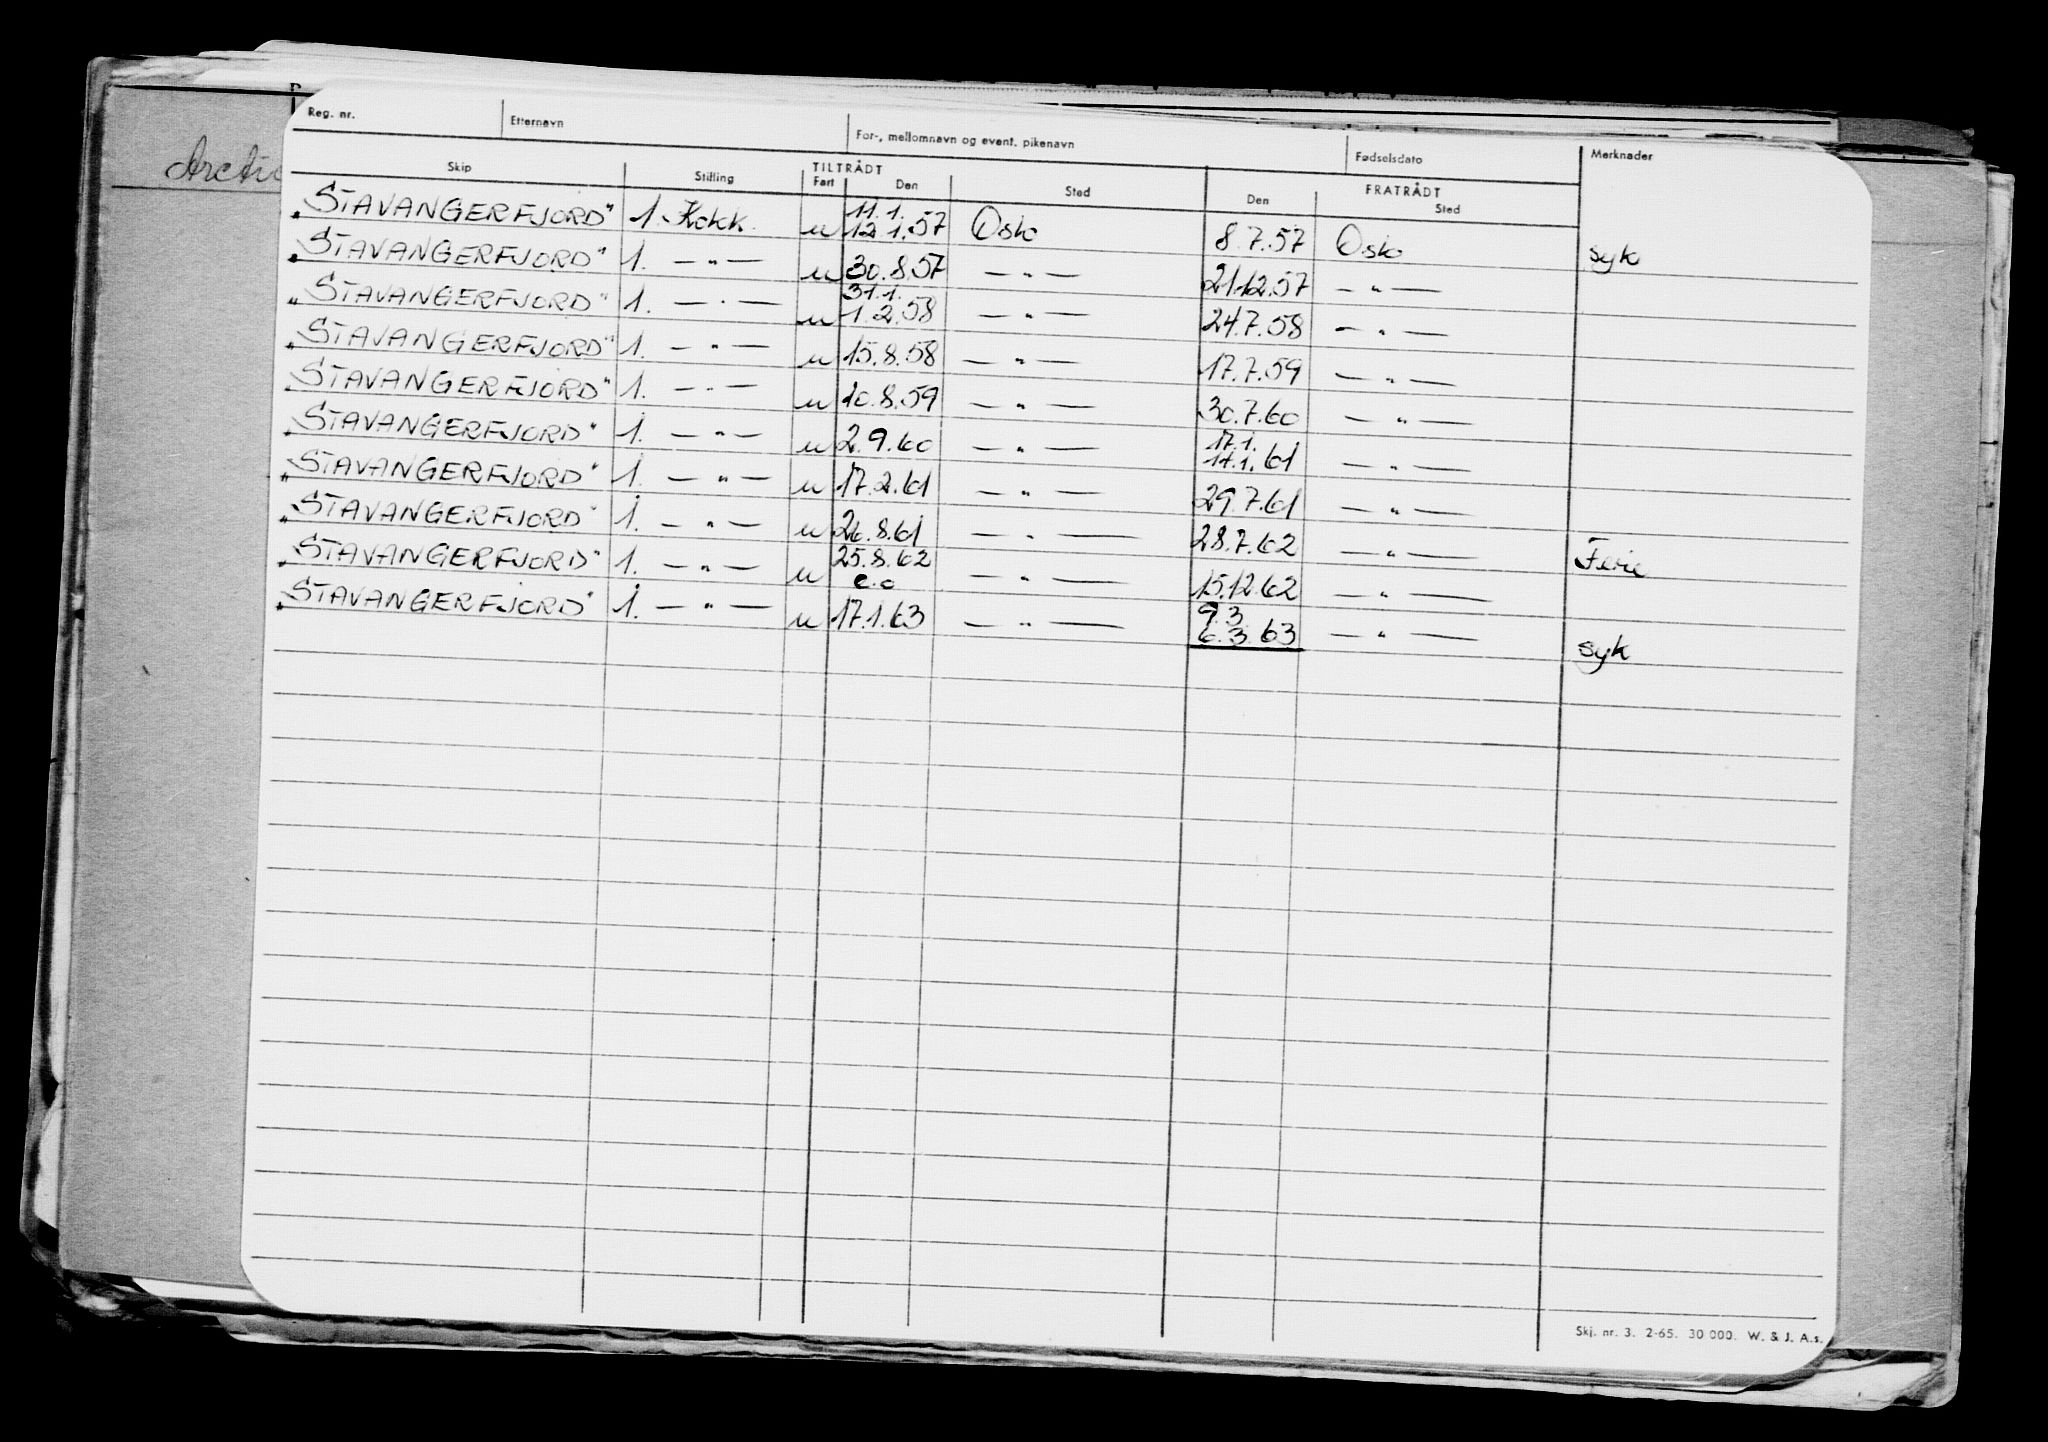 Reg. nr. Etternavn For-, mellomnavn og event. pikenavn Fødselsdato Merknader
Skip Stilling TILTRÅDT Fart Den Sted FRATRÅDT Den Sted
11.1.
„STAVANGERFJORD" 1. Kokk u 12.1.57 Oslo 8.7.57 Oslo syk
„STAVANGERFJORD" 1. — " — u 30.8.57 — " — 21.12.57 — " —
31.1.
„STAVANGERFJORD" 1. — " — u 1.2.58 — " — 24.7.58 — " —
„STAVANGERFJORD" 1. — " — u 15.8.58 — " — 17.7.59 — " —
„STAVANGERFJORD" 1. — " — u 20.8.59 — " — 30.7.60 — " —
17.1.
„STAVANGERFJORD" 1. — " — u 2.9.60 — " — 14.1.61 — " —
„STAVANGERFJORD" 1. — " — u 17.2.61 — " — 29.7.61 — " —
„STAVANGERFJORD" 1. — " — u 26.8.61 — " — 28.7.62 — " — Ferie
25.8.62
„STAVANGERFJORD" 1. — " — u — " — 15.12.62 — " —
9.3.
„STAVANGERFJORD" 1. — " — u 17.1.63 — " — 6.3.63 — " — syk
Skj. nr. 3. 2-65. 30 000. W. & J. A.s.